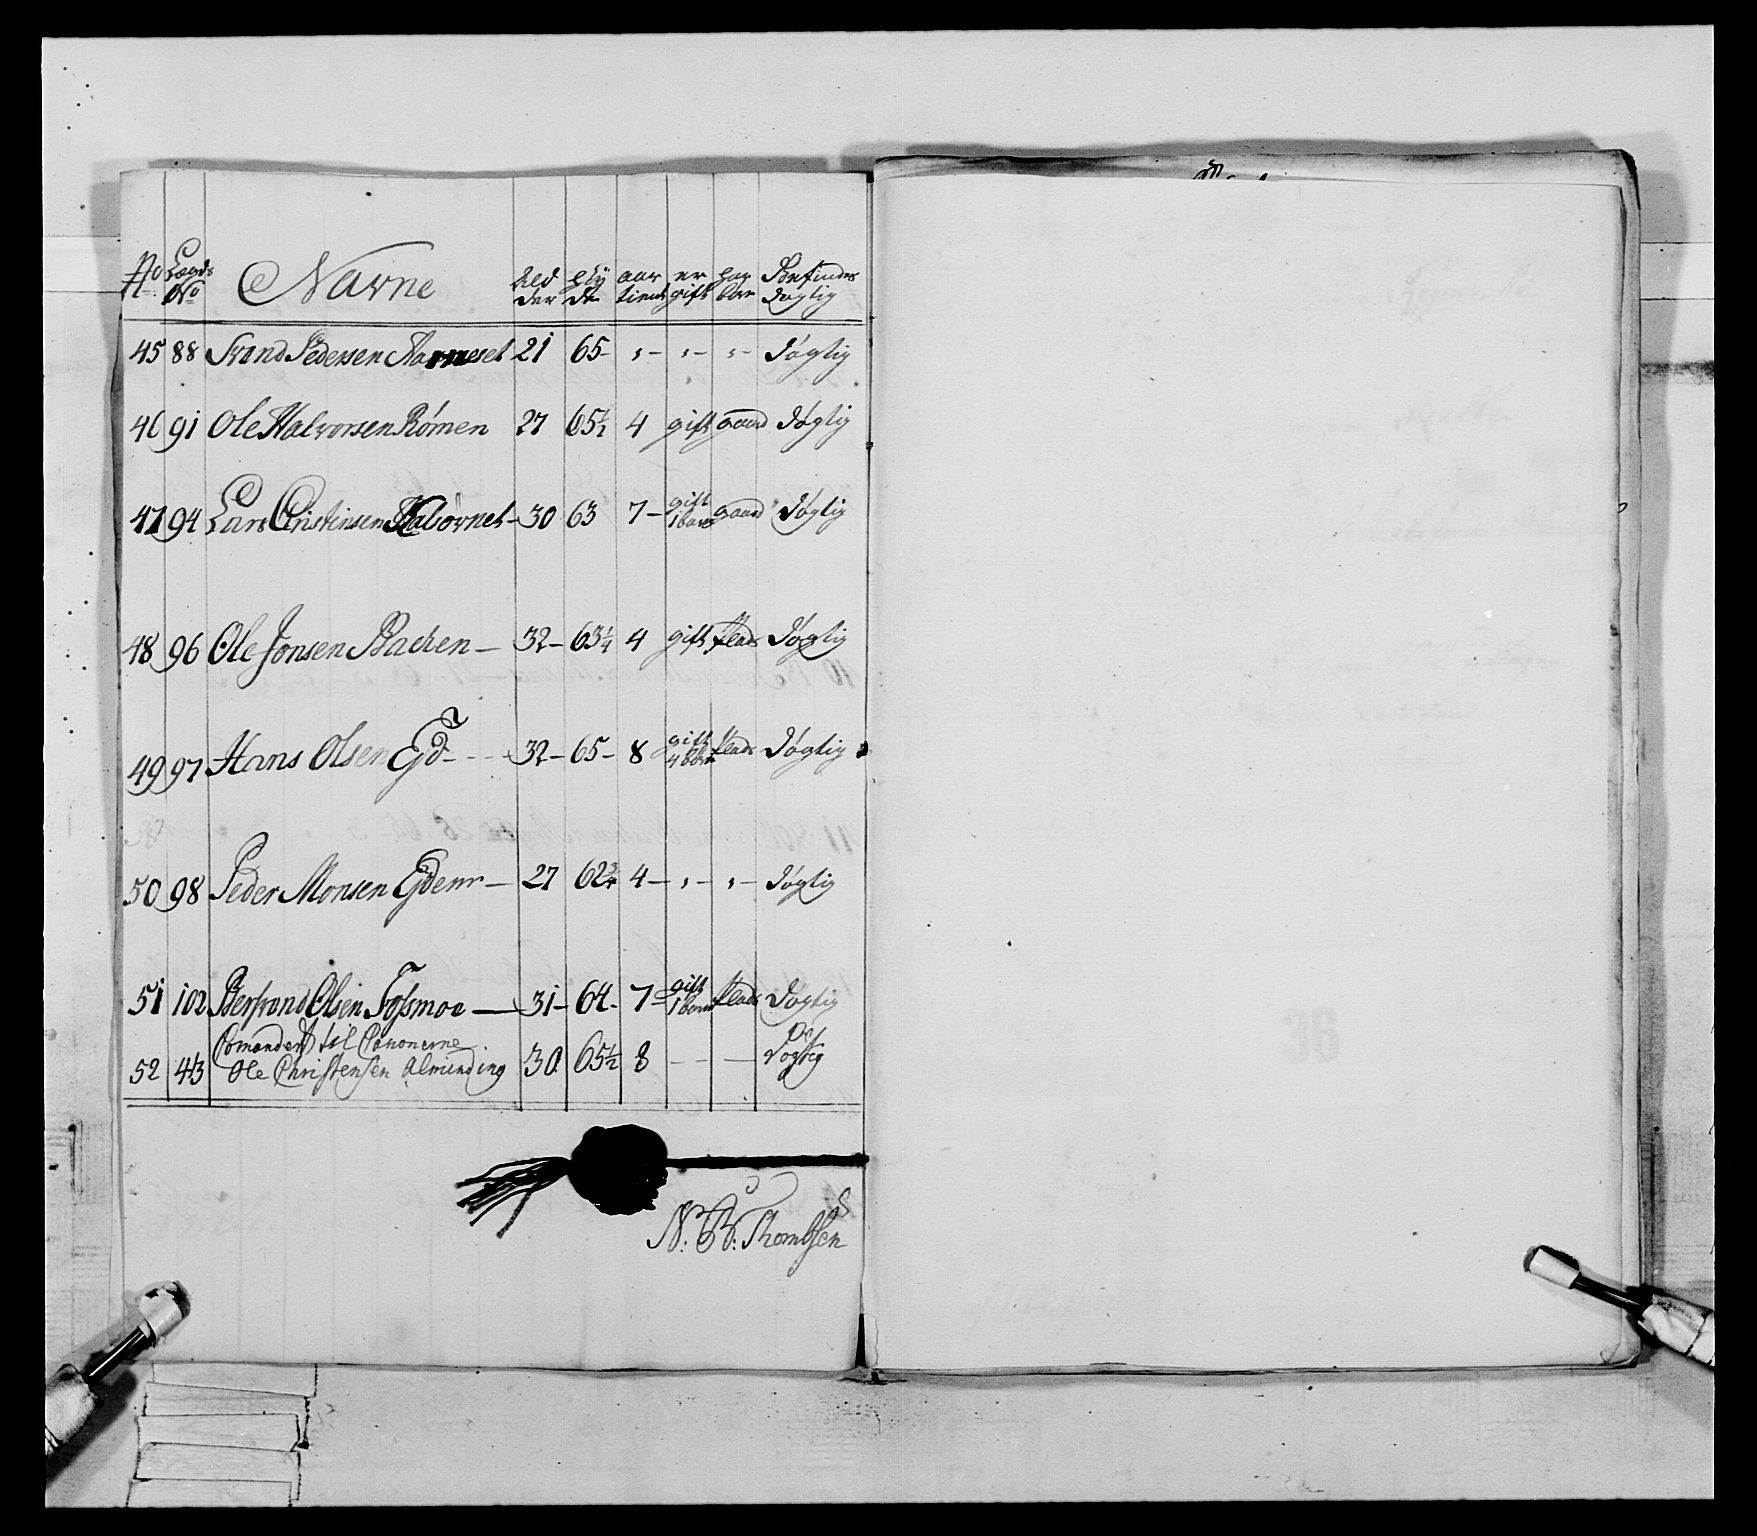 No Lægds No Navne Ald der Høy de aar tient er gift har bor Befindes døgtig
45 88 Svend Pedersen 21 65 - " - " - " - døgtig
46 91 Ole Halvorsen Rømen 27 65½ 4 gift gaard døgtig
47 94 Lars Christensen 30 63 7 - gift 1 barn gaard døgtig
48 96 Ole Jonsen Bachen - 32 - 63¼ 4 gift Plads døgtig
49 97 Hans Olsen Ejd - - - 32 - 65 - 8 gift 4 børn Plads døgtig
50 98 Peder Monsen - 27 62¾ 4 - " - " - døgtig
51 102 Olsen Fossmoe - 31 - 64 - 7 - gift 1 barn Plads døgtig
Comandert til Canonerne
52 43 Ole Christensen Almunding 30 65½ 8 - - - døgtig
N. B. Thombsen